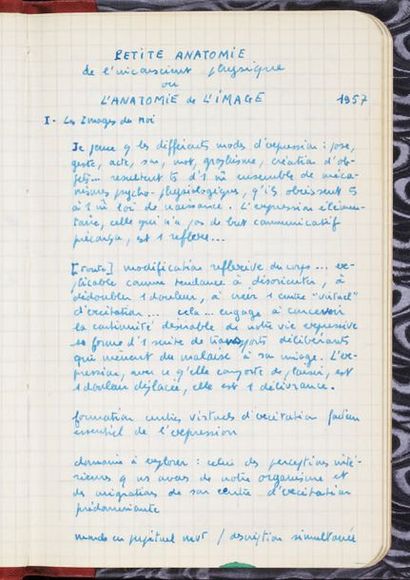 PETITE ANATOMIE
de l'inconscient physique
ou
L'ANATOMIE de L'IMAGE 1957
I - Les Images du Moi
Je pense q les différents modes d'expression : pose,
geste, acte, son, mot, graphisme, création d'ob-
jets... resultent ts d'1 m ensemble de méca-
nismes psycho-physiologiques, q'ils obeissent ts
à 1 m loi de naissance. L'expression élémen-
taire, celle qui n'a pas de but communicatif
préconçu, est 1 reflexe...
[toute] modification reflexive du corps... ex-
plicable comme tendance à désorienter, à
dédoubler 1 douleur, à créer 1 centre "virtuel"
d'excitation... cela... engage à concevoir
la continuité desirable de notre vie expressive
ss forme d'1 suite de transports délibérants
qui mènent du malaise à son image. L'ex-
pression, avec ce q'elle comporte de plaisir, est
1 douleur déplacée, elle est 1 délivrance.
formation centres virtuels d'excitation
essentiel de l'expression
domaine à explorer : celui des perceptions inté-
rieures q ns avons de notre organisme et
des migrations de son centre d'excitation
prédominante
monde en perpetuel mvt / description simultanée